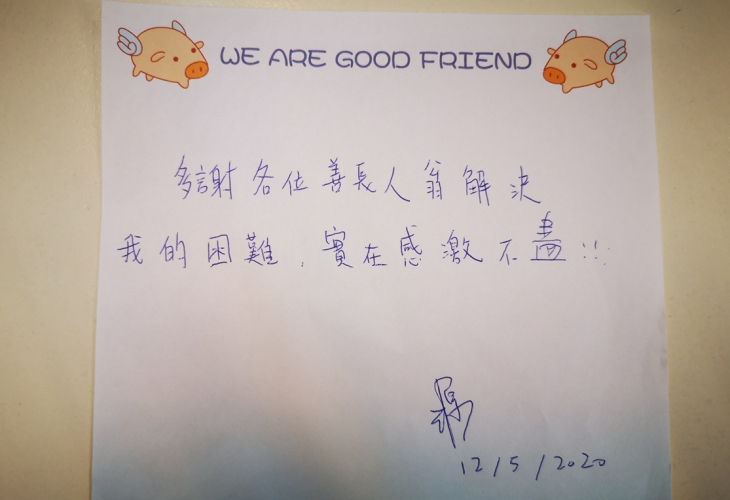 WE ARE GOOD FRIEND
多謝各位善長人翁解決
我的困難,實在感激不盡!!!
12/5/2020